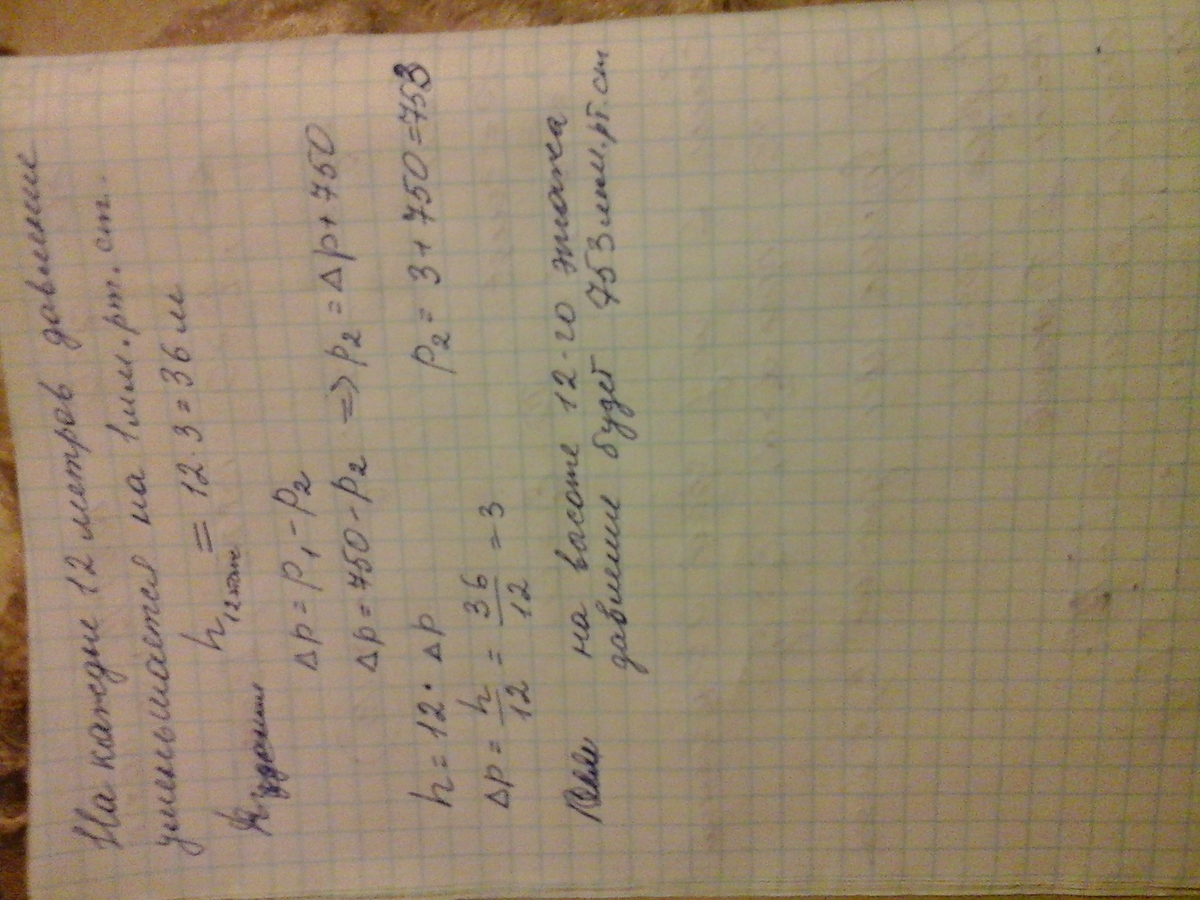 На каждые 12 метров давление
уменьшается на 1 мм. рт. ст.
h 12 этаж = 12 · 3 = 36 м
Δp = p₁ - p₂
Δp = 750 - p₂ => p₂ = Δp + 750
h = 12 · Δp
p₂ = 3 + 750 = 753
Δp = h/12 = 36/12 = 3
на высоте 12-го этажа
давление будет 753 мм. рт. ст